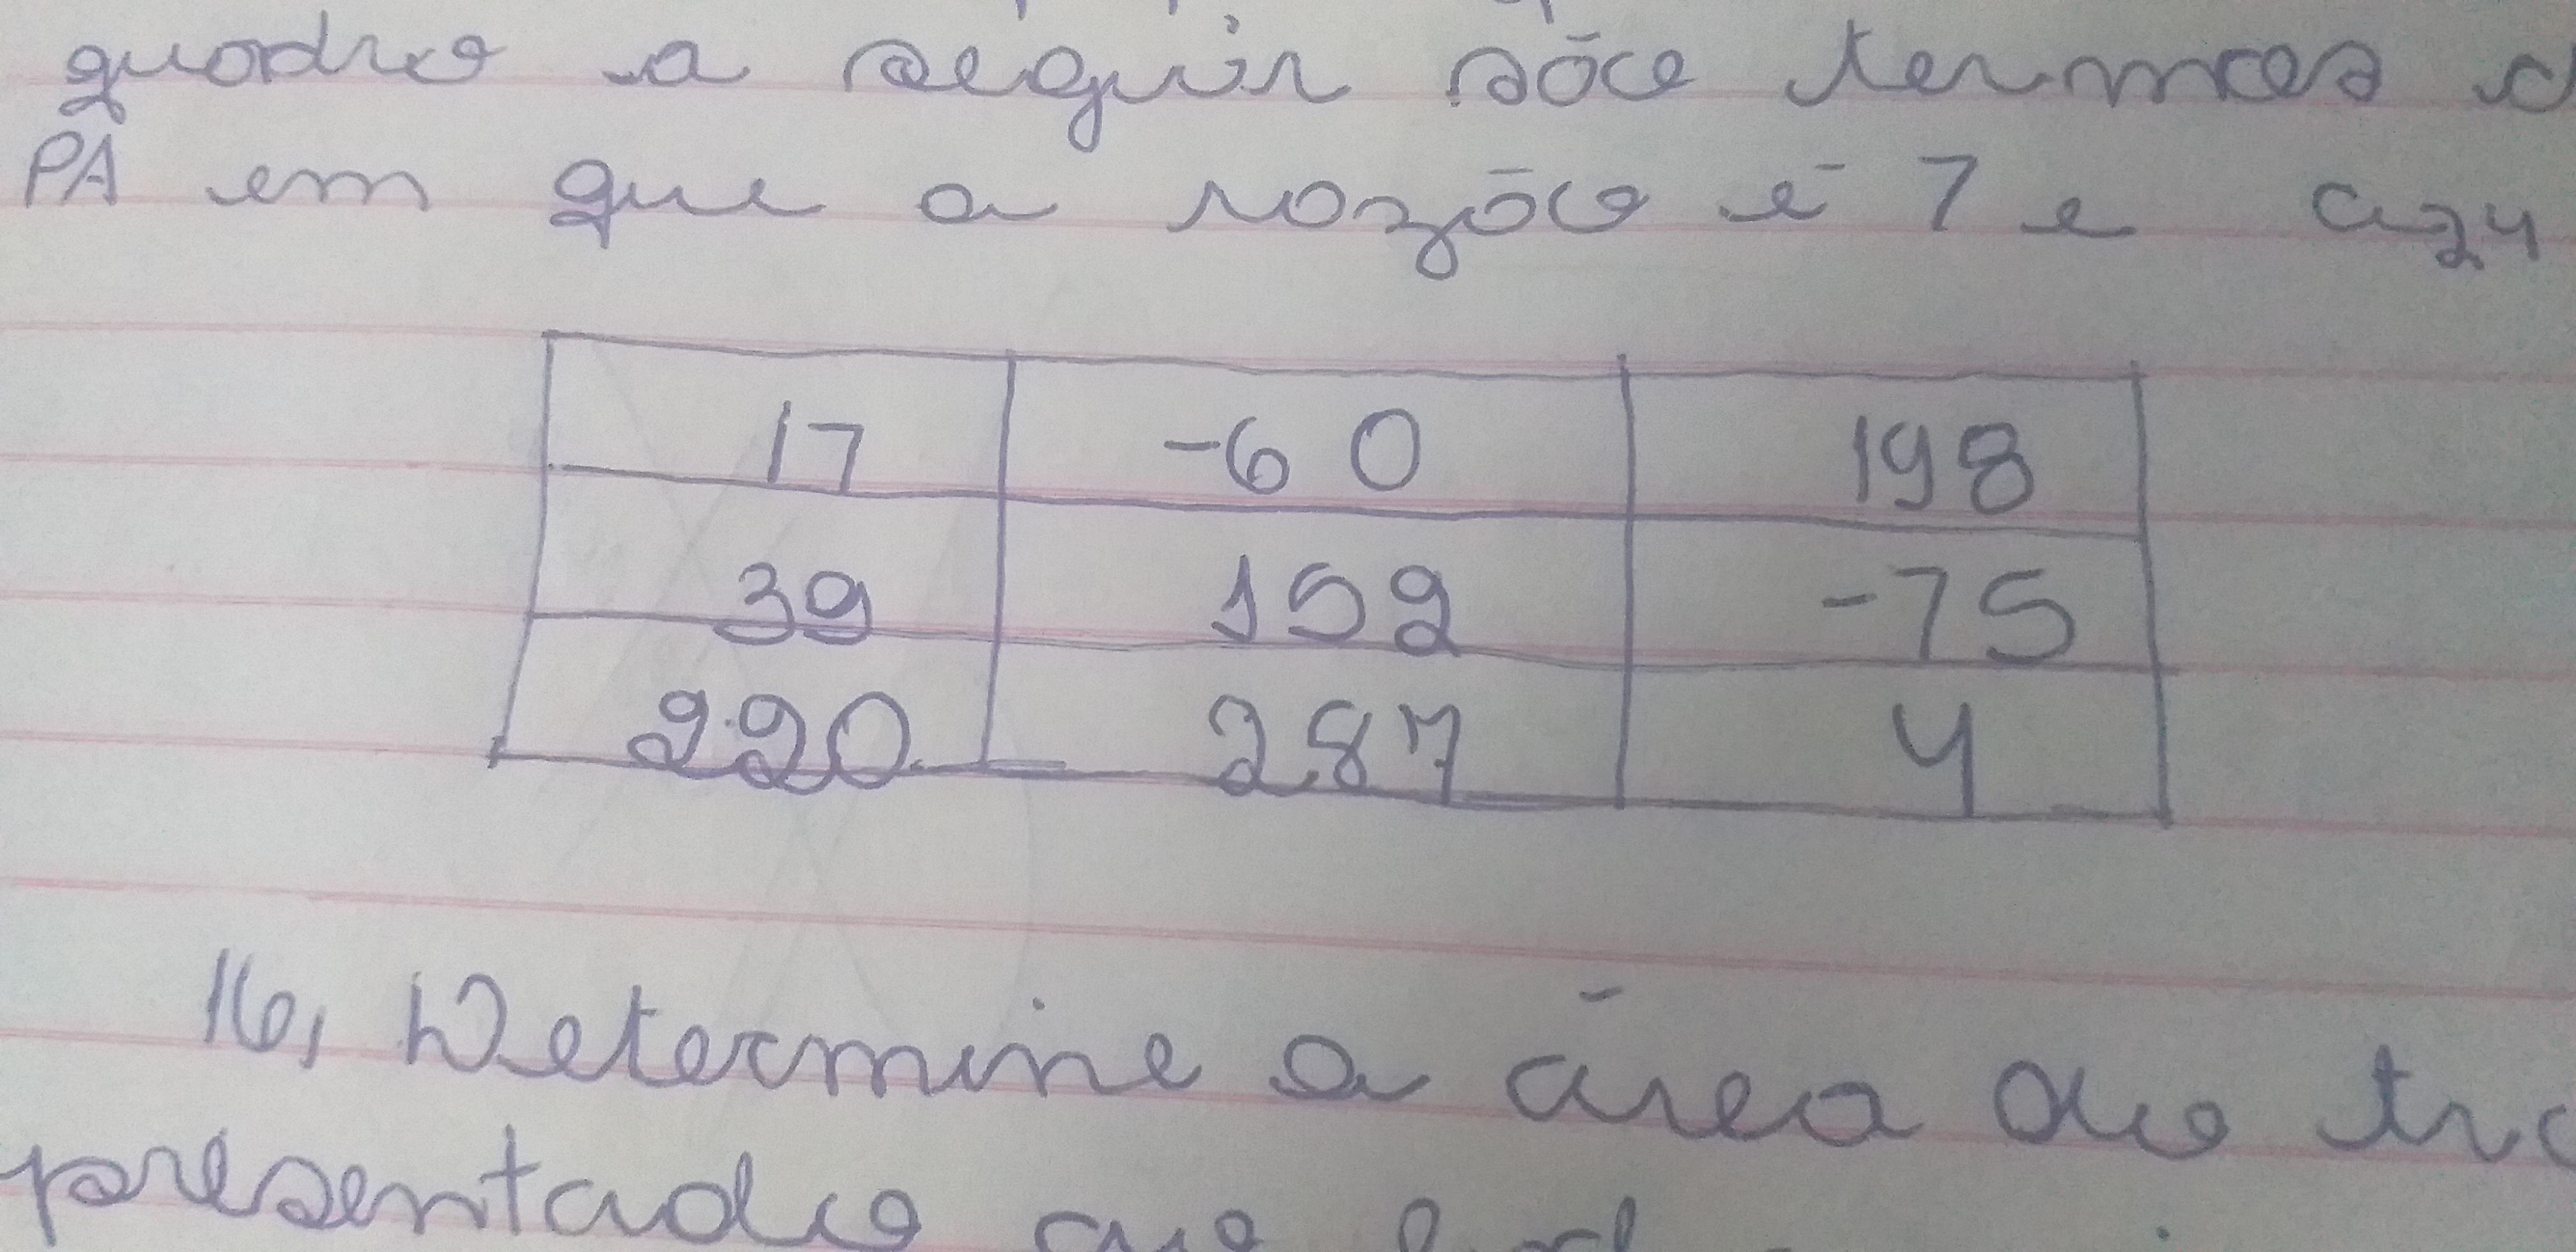 quadro a seguir são termos d
PA em que a razão é 7 e a24
17 -60 198
39 152 -75
220 287 4
16, Determine a área do tra
presentado